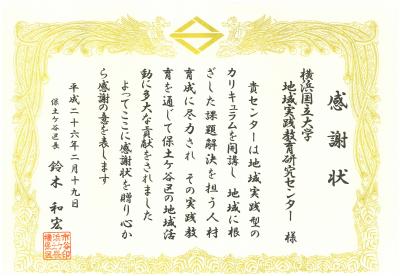 感謝状
横浜国立大学
地域実践教育研究センター 様
貴センターは地域実践型の
カリキュラムを開講し 地域に根
ざした課題解決を担う人材
育成に尽力され その実践教
育を通じて保土ケ谷区の地域活
動に多大な貢献をされました
よってここに感謝状を贈り心か
ら感謝の意を表します
平成二十六年二月十九日
保土ケ谷区長 鈴木和宏